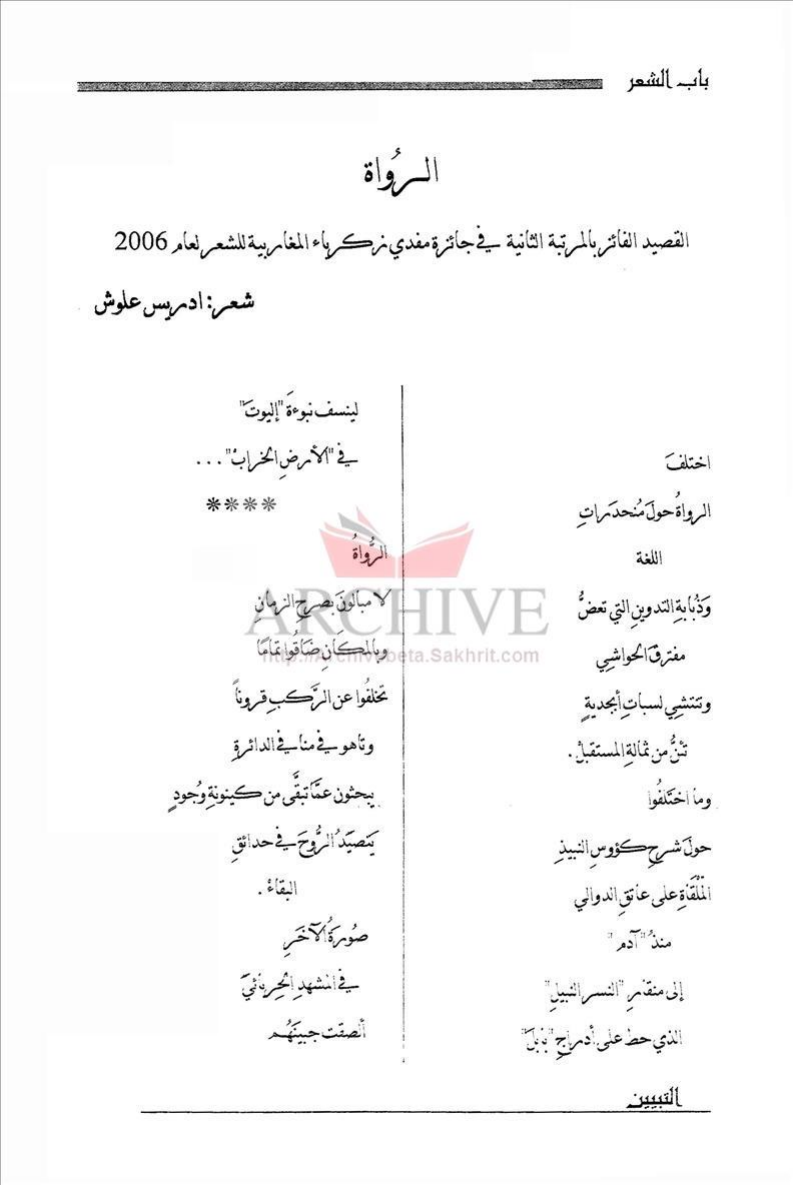 باب الشعر
الــرُواة
القصيد الفائز بالمرتبة الثانية في جائزة مفدي زكرياء المغاربية للشعر لعام 2006
شعر: ادريس علوش
اختلفَ
الرواةُ حولَ مُنحدراتِ
اللغة
وَذُبابةِ التدوينِ التي تعضُّ
مفترقَ الحواشِي
وتنتشِي لسباتِ أبجديةٍ
تئنُّ من ثمالةِ المستقبلْ.
وما اختَلفُوا
حولَ شرحِ كؤوسِ النبيذِ
المُلْقَاةِ على عاتقِ الدوالي
منذُ "آدم"
إلى منقارِ "النسر النبيلِ"
الذي حط على أدراجِ "بابلَ"
لينسف نبوءةَ "إليوتَ"
في "الأرضِ الخرابْ"...
****
الرُّواةُ
لا مبالونَ بصرحِ الزمانِ
وبالمكَانِ ضَاقُوا تمامًا
تخلفُوا عن الرَّكبِ قروناً
وتاهو في منافي الدائرةِ
يبحثون عمَّا تبقَّى من كينونةِ وُجودٍ
يتصيَدُ الرُّوحَ في حدائقِ
البقاءْ.
صُورةُ الآخَرِ
في المشهدِ الحِربائيّ
ألصقت جبينَهُم
التبيين
ARCHIVE
http://Archivebeta.Sakhrit.com